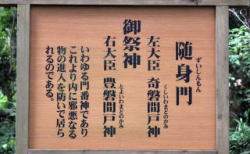 随身門
ずいしんもん
御祭神
左大臣 奇磐間戸神
くしいわまとのかみ
右大臣 豊磐間戸神
とよいわまとのかみ
いわゆる門番神であり
これより内に邪悪なる
物の進入を防いで居ら
れるのである。